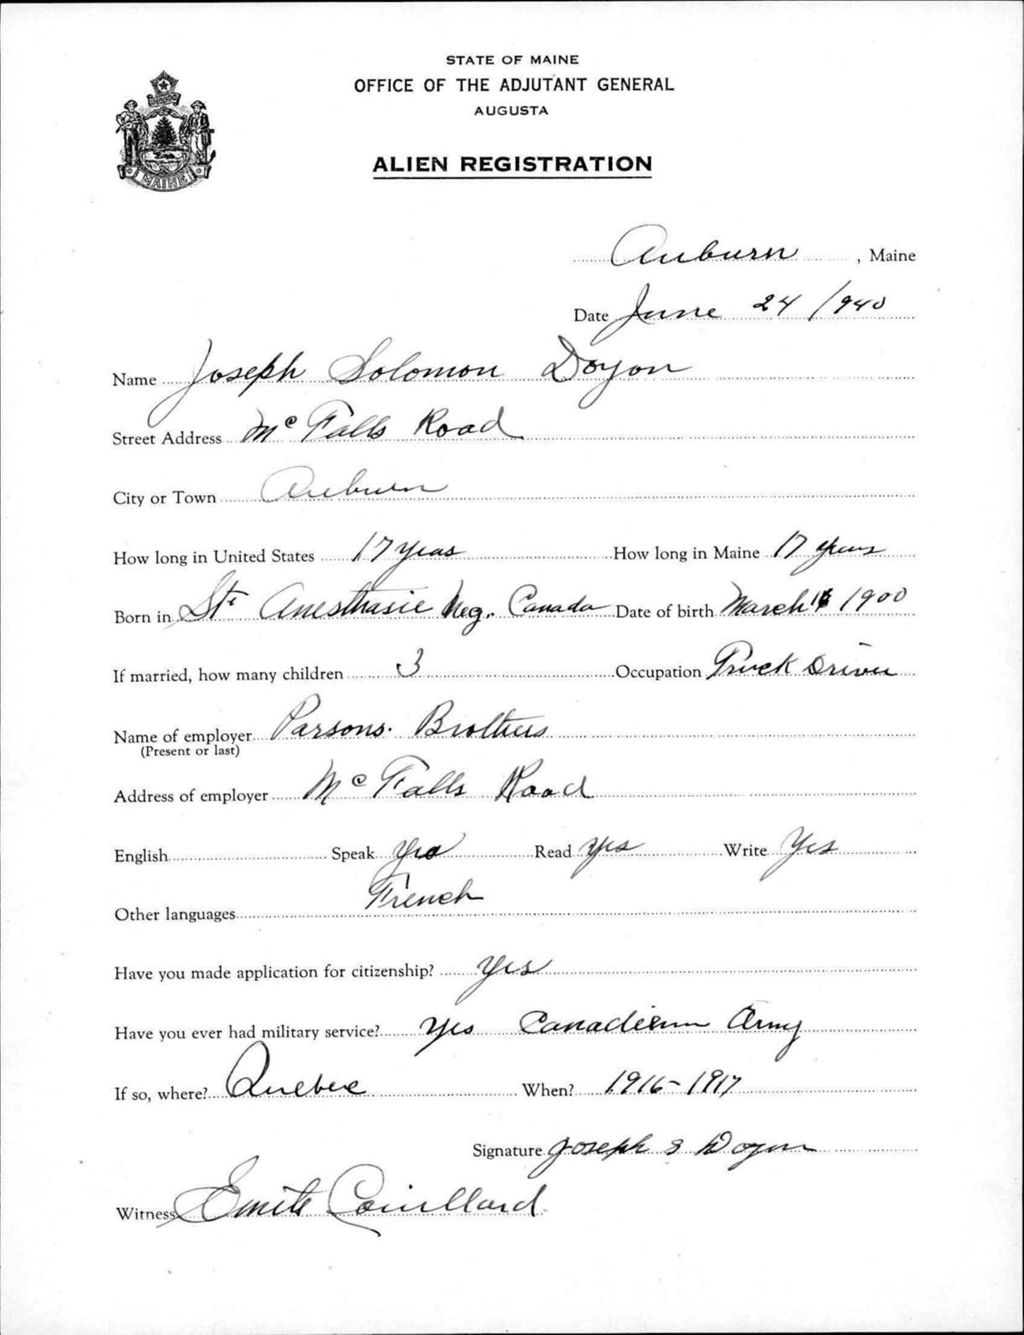 STATE OF MAINE
OFFICE OF THE ADJUTANT GENERAL
AUGUSTA
ALIEN REGISTRATION
MAINE
Auburn, Maine
Date June 24 1940
Name Joseph Solomon Doyon
Street Address Mc Falls Road
City or Town Auburn
How long in United States 17 years How long in Maine 17 years
Born in St. Anesthasie Meg. Canada Date of birth March 1900
If married, how many children 3 Occupation Truck Driver
Name of employer Parsons. Brothers
(Present or last)
Address of employer Mc Falls Road
English Speak yes Read yes Write Yes
Other languages French
Have you made application for citizenship? yes
Have you ever had military service? yes Canadian Army
If so, where? Quebec When? 1916-1917
Signature Joseph S Doyon
Witness Couillard